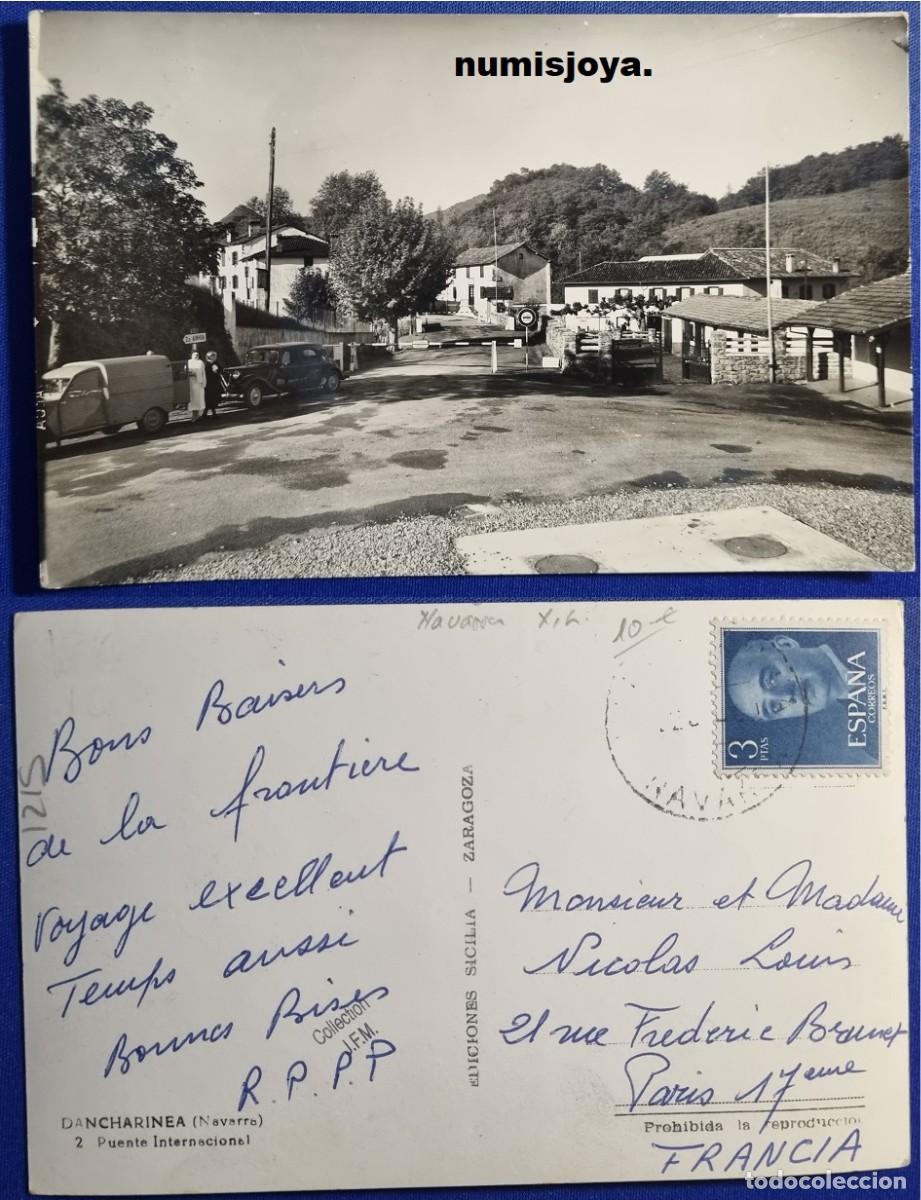 numisjoya.
Navarra
10 €
1215
ESPAÑA
CORREOS
3
PTAS
F.N.M.T.
NAVAR
Bons Baisers
de la frontiere
Voyage excellent
Temps aussi
Bonnes Bises
R.P.P.P
Collection
J.F.M.
DANCHARINEA (Navarra)
2 Puente Internacional
EDICIONES SICILIA — ZARAGOZA
Monsieur et Madame
Nicolas Louis
21 rue Frederic Brunet
Paris 17eme
Prohibida la reproducción
FRANCIA
todocoleccion